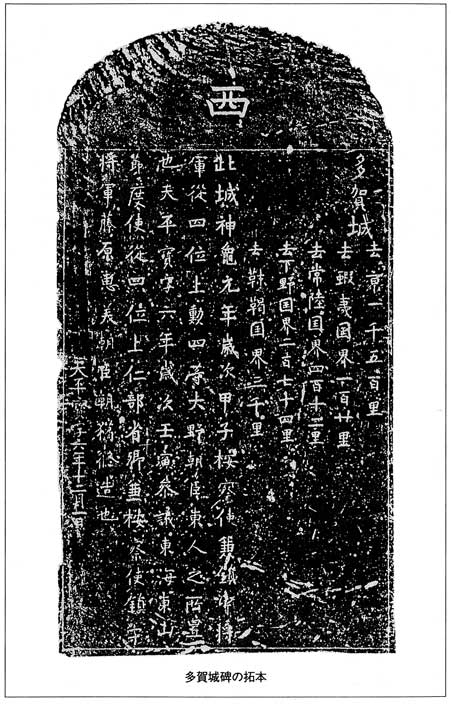 西
多賀城
去京一千五百里
去蝦夷国界一百廿里
去常陸国界四百十二里
去下野国界二百七十四里
去靺鞨国界三千里
此城神龜元年歳次甲子按察使兼鎮守将
軍従四位上勲四等大野朝臣東人之所置
也天平寶字六年歳次壬寅参議東海東山
節度使従四位上仁部省卿兼按察使鎮守
将軍藤原恵美朝臣朝獦修造也
天平寶字六年十二月一日
多賀城碑の拓本